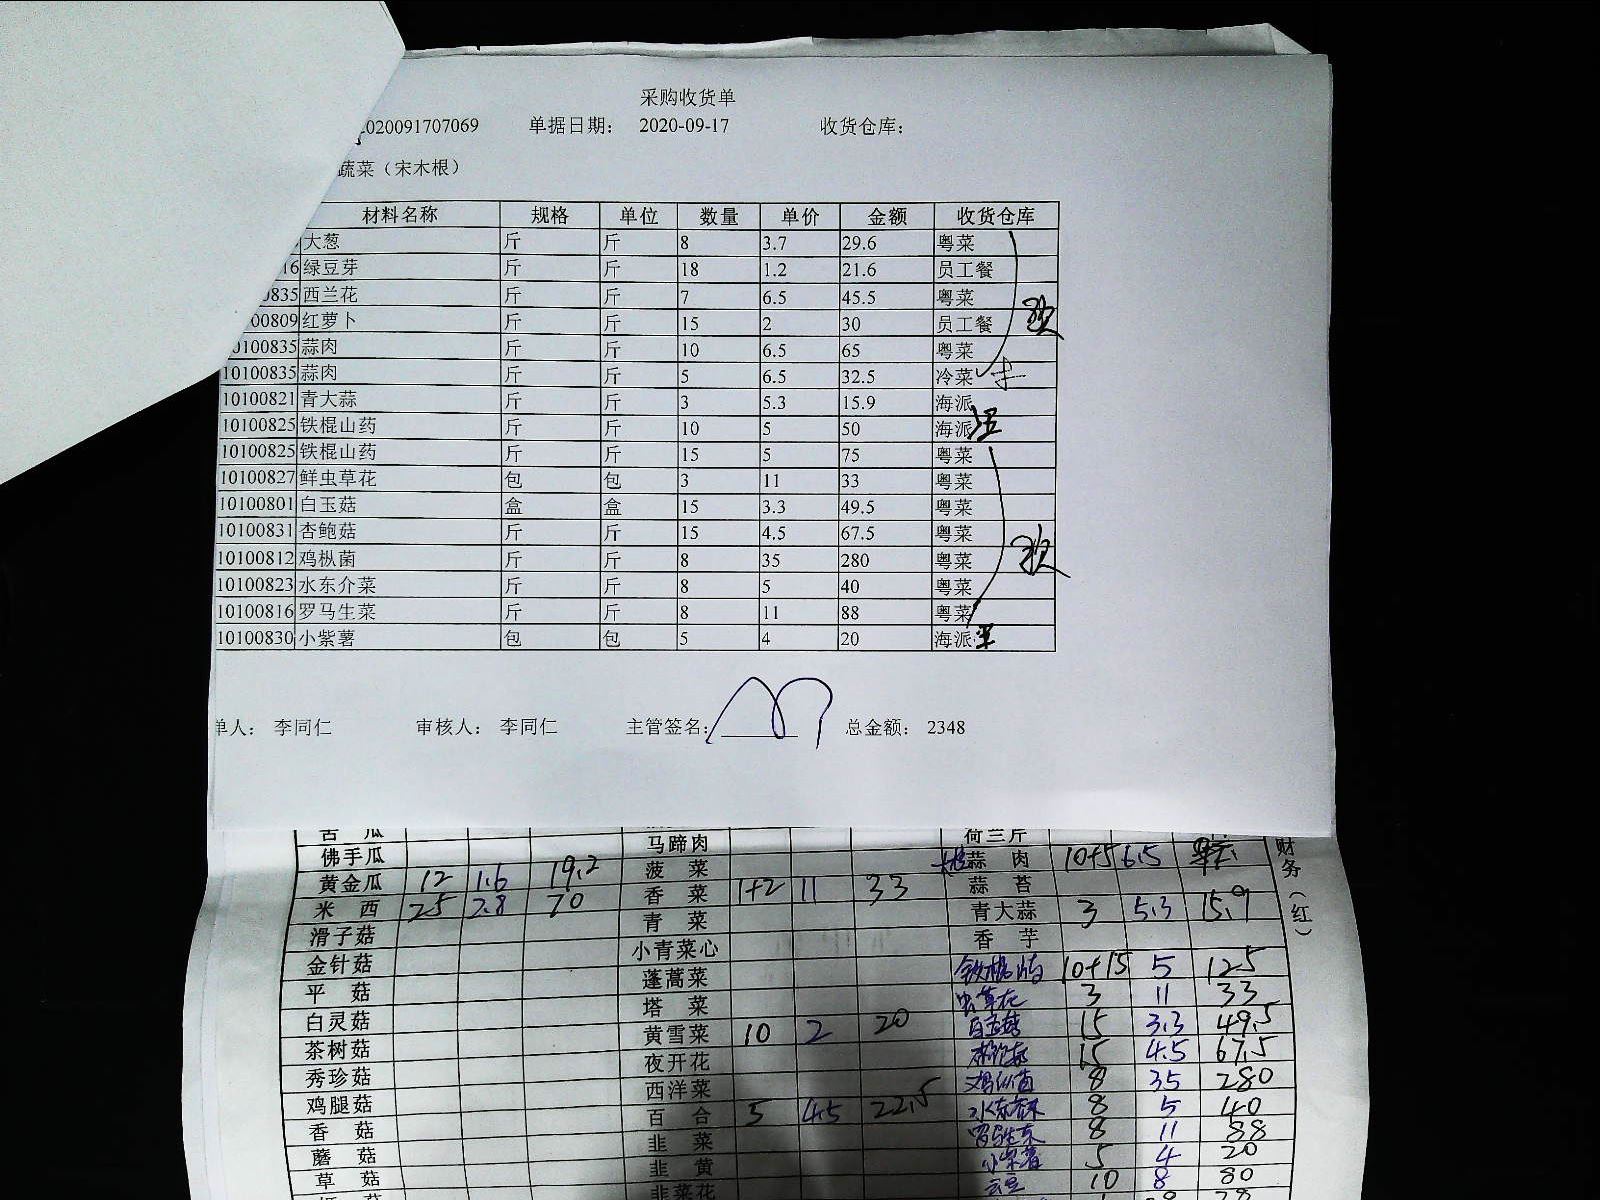 采购收货单
2020091707069 单据日期： 2020-09-17 收货仓库：
蔬菜（宋木根）
材料名称 规格 单位 数量 单价 金额 收货仓库
大葱 斤 斤 8 3.7 29.6 粤菜
16 绿豆芽 斤 斤 18 1.2 21.6 员工餐
0835 西兰花 斤 斤 7 6.5 45.5 粤菜
00809 红萝卜 斤 斤 15 2 30 员工餐
0100835 蒜肉 斤 斤 10 6.5 65 粤菜
10100835 蒜肉 斤 斤 5 6.5 32.5 冷菜
10100821 青大蒜 斤 斤 3 5.3 15.9 海派
10100825 铁棍山药 斤 斤 10 5 50 海派
10100825 铁棍山药 斤 斤 15 5 75 粤菜
10100827 鲜虫草花 包 包 3 11 33 粤菜
10100801 白玉菇 盒 盒 15 3.3 49.5 粤菜
10100831 杏鲍菇 斤 斤 15 4.5 67.5 粤菜
10100812 鸡枞菌 斤 斤 8 35 280 粤菜
10100823 水东介菜 斤 斤 8 5 40 粤菜
10100816 罗马生菜 斤 斤 8 11 88 粤菜
10100830 小紫薯 包 包 5 4 20 海派
单人： 李同仁 审核人： 李同仁 主管签名： 总金额： 2348
苦 瓜 马蹄肉 荷兰斤
佛手瓜 菠 菜 蒜 肉 10+5 6.5
黄金瓜 12 1.6 19.2 香 菜 1+2 11 33 蒜 苔
米 西 25 2.8 70 青 菜 青大蒜 3 5.3 15.9
滑子菇 小青菜心 香 芋
金针菇 蓬蒿菜 铁棍山药 10+15 5 125
平 菇 塔 菜 虫草花 3 11 33
白灵菇 黄雪菜 10 2 20 白玉菇 15 3.3 49.5
茶树菇 夜开花 杏鲍菇 15 4.5 67.5
秀珍菇 西洋菜 鸡枞菌 8 35 280
鸡腿菇 百 合 5 4.5 22.5 水东芥菜 8 5 40
香 菇 韭 菜 罗马生菜 8 11 88
蘑 菇 韭 黄 小紫薯 5 4 20
草 菇 韭菜花 10 8 80
财务（红）